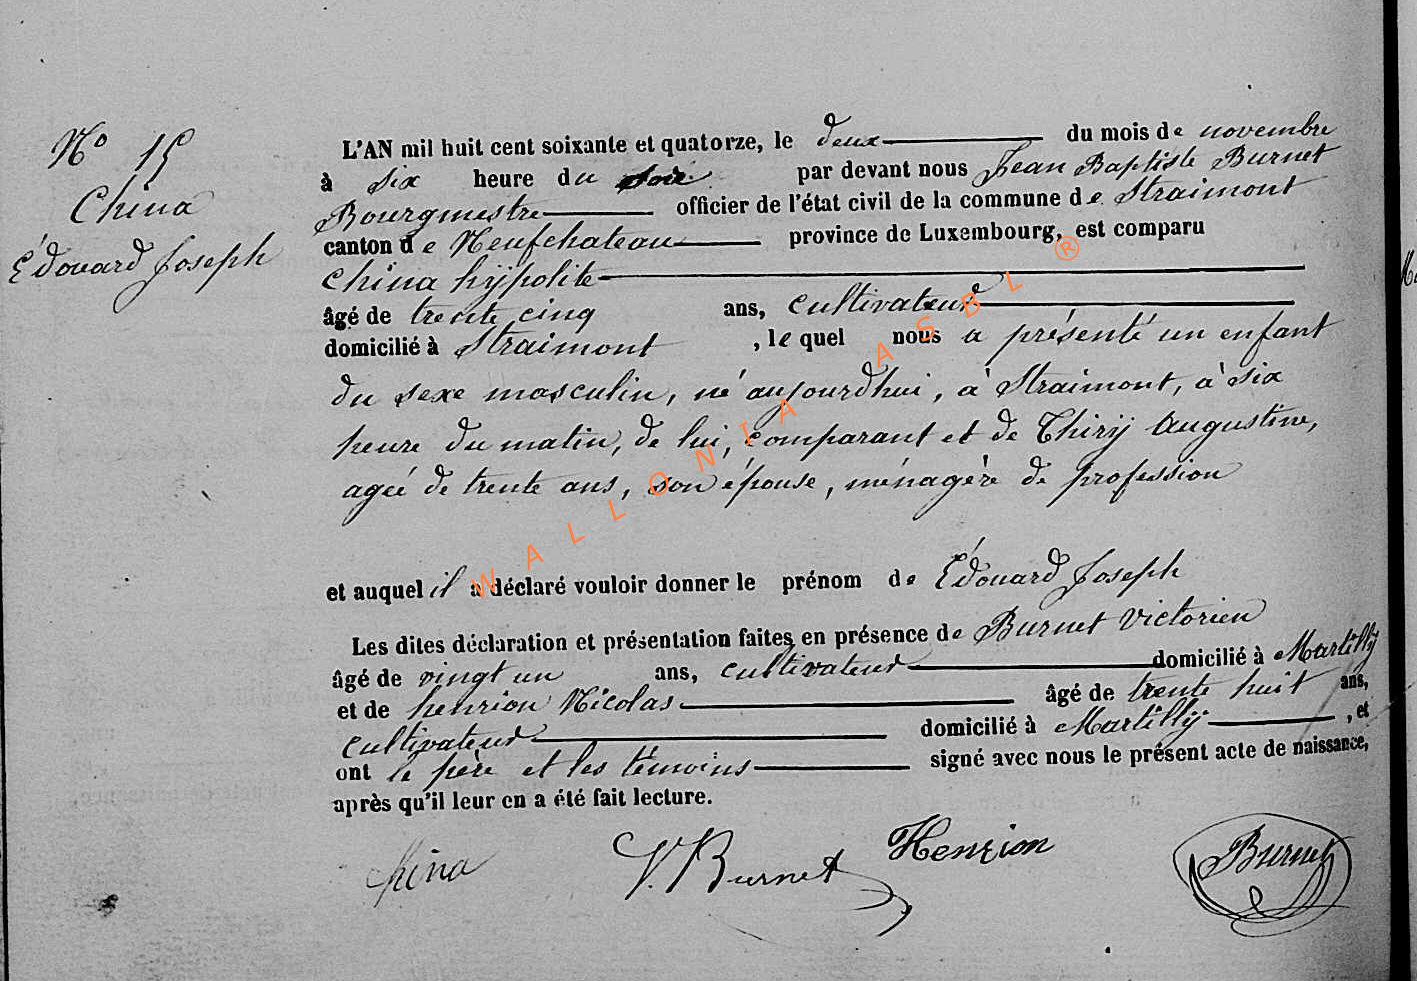 No 15
China
Édouard Joseph
L'AN mil huit cent soixante et quatorze, le deux du mois de novembre
à six heure du soir par devant nous Jean Baptiste Burnet
Bourgmestre officier de l'état civil de la commune de Straimont
canton de Neufchateau province de Luxembourg, est comparu
China hypolite
âgé de trente cinq ans, cultivateur
domicilié à Straimont , le quel nous a présenté un enfant
du sexe masculin, né aujourdhui, à Straimont, à six
heure du matin, de lui, comparant et de Thiry Augustine,
agée de trente ans, son épouse, ménagère de profession
et auquel il a déclaré vouloir donner le prénom de Édouard Joseph
Les dites déclaration et présentation faites en présence de Burnet Victorien
âgé de vingt un ans, cultivateur domicilié à Martilly
et de henrion Nicolas âgé de trente huit ans,
cultivateur domicilié à Martilly , et
ont le père et les témoins signé avec nous le présent acte de naissance,
après qu'il leur en a été fait lecture.
China V. Burnet Henrion Burnet
WALLONIA ASBL ®